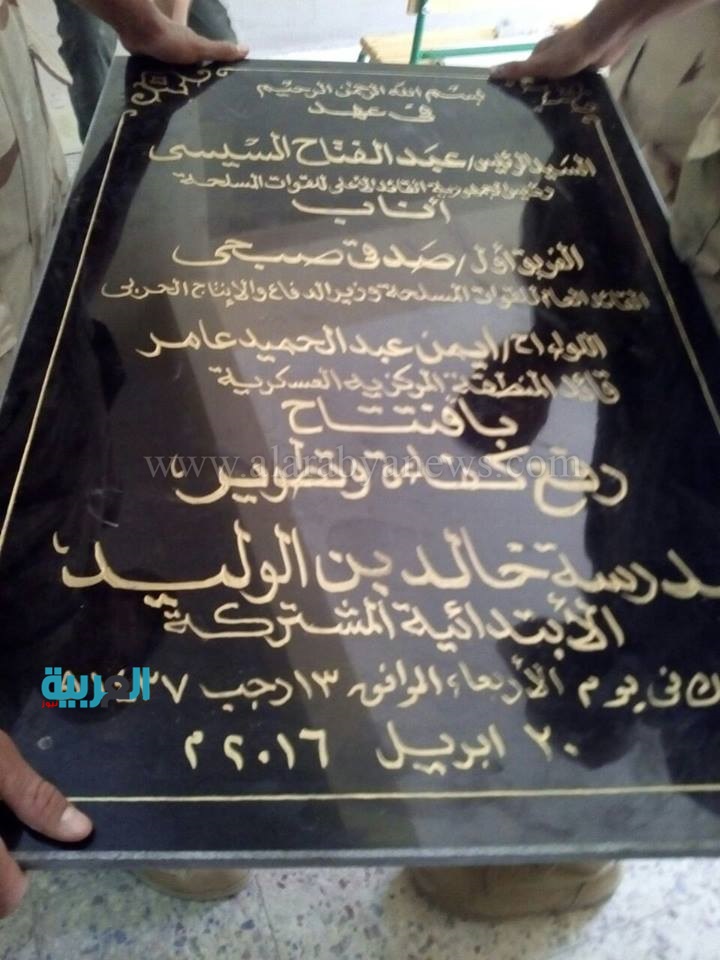 بسم الله الرحمن الرحيم
فى عهد
السيد الرئيس / عبد الفتاح السيسى
رئيس الجمهورية القائد الأعلى للقوات المسلحة
أناب
الفريق أول / صدقى صبحى
القائد العام للقوات المسلحة وزير الدفاع والإنتاج الحربى
اللواء أ.ح / أيمن عبد الحميد عامر
قائد المنطقة المركزية العسكرية
بافتتاح
www.alarabyanews.com
رفع كفاءة وتطوير
مدرسة خالد بن الوليد
الأبتدائية المشتركة
العربية نيوز
فى يوم الأربعاء الموافق ١٣ رجب
٢٠ ابريل ٢٠١٦ م